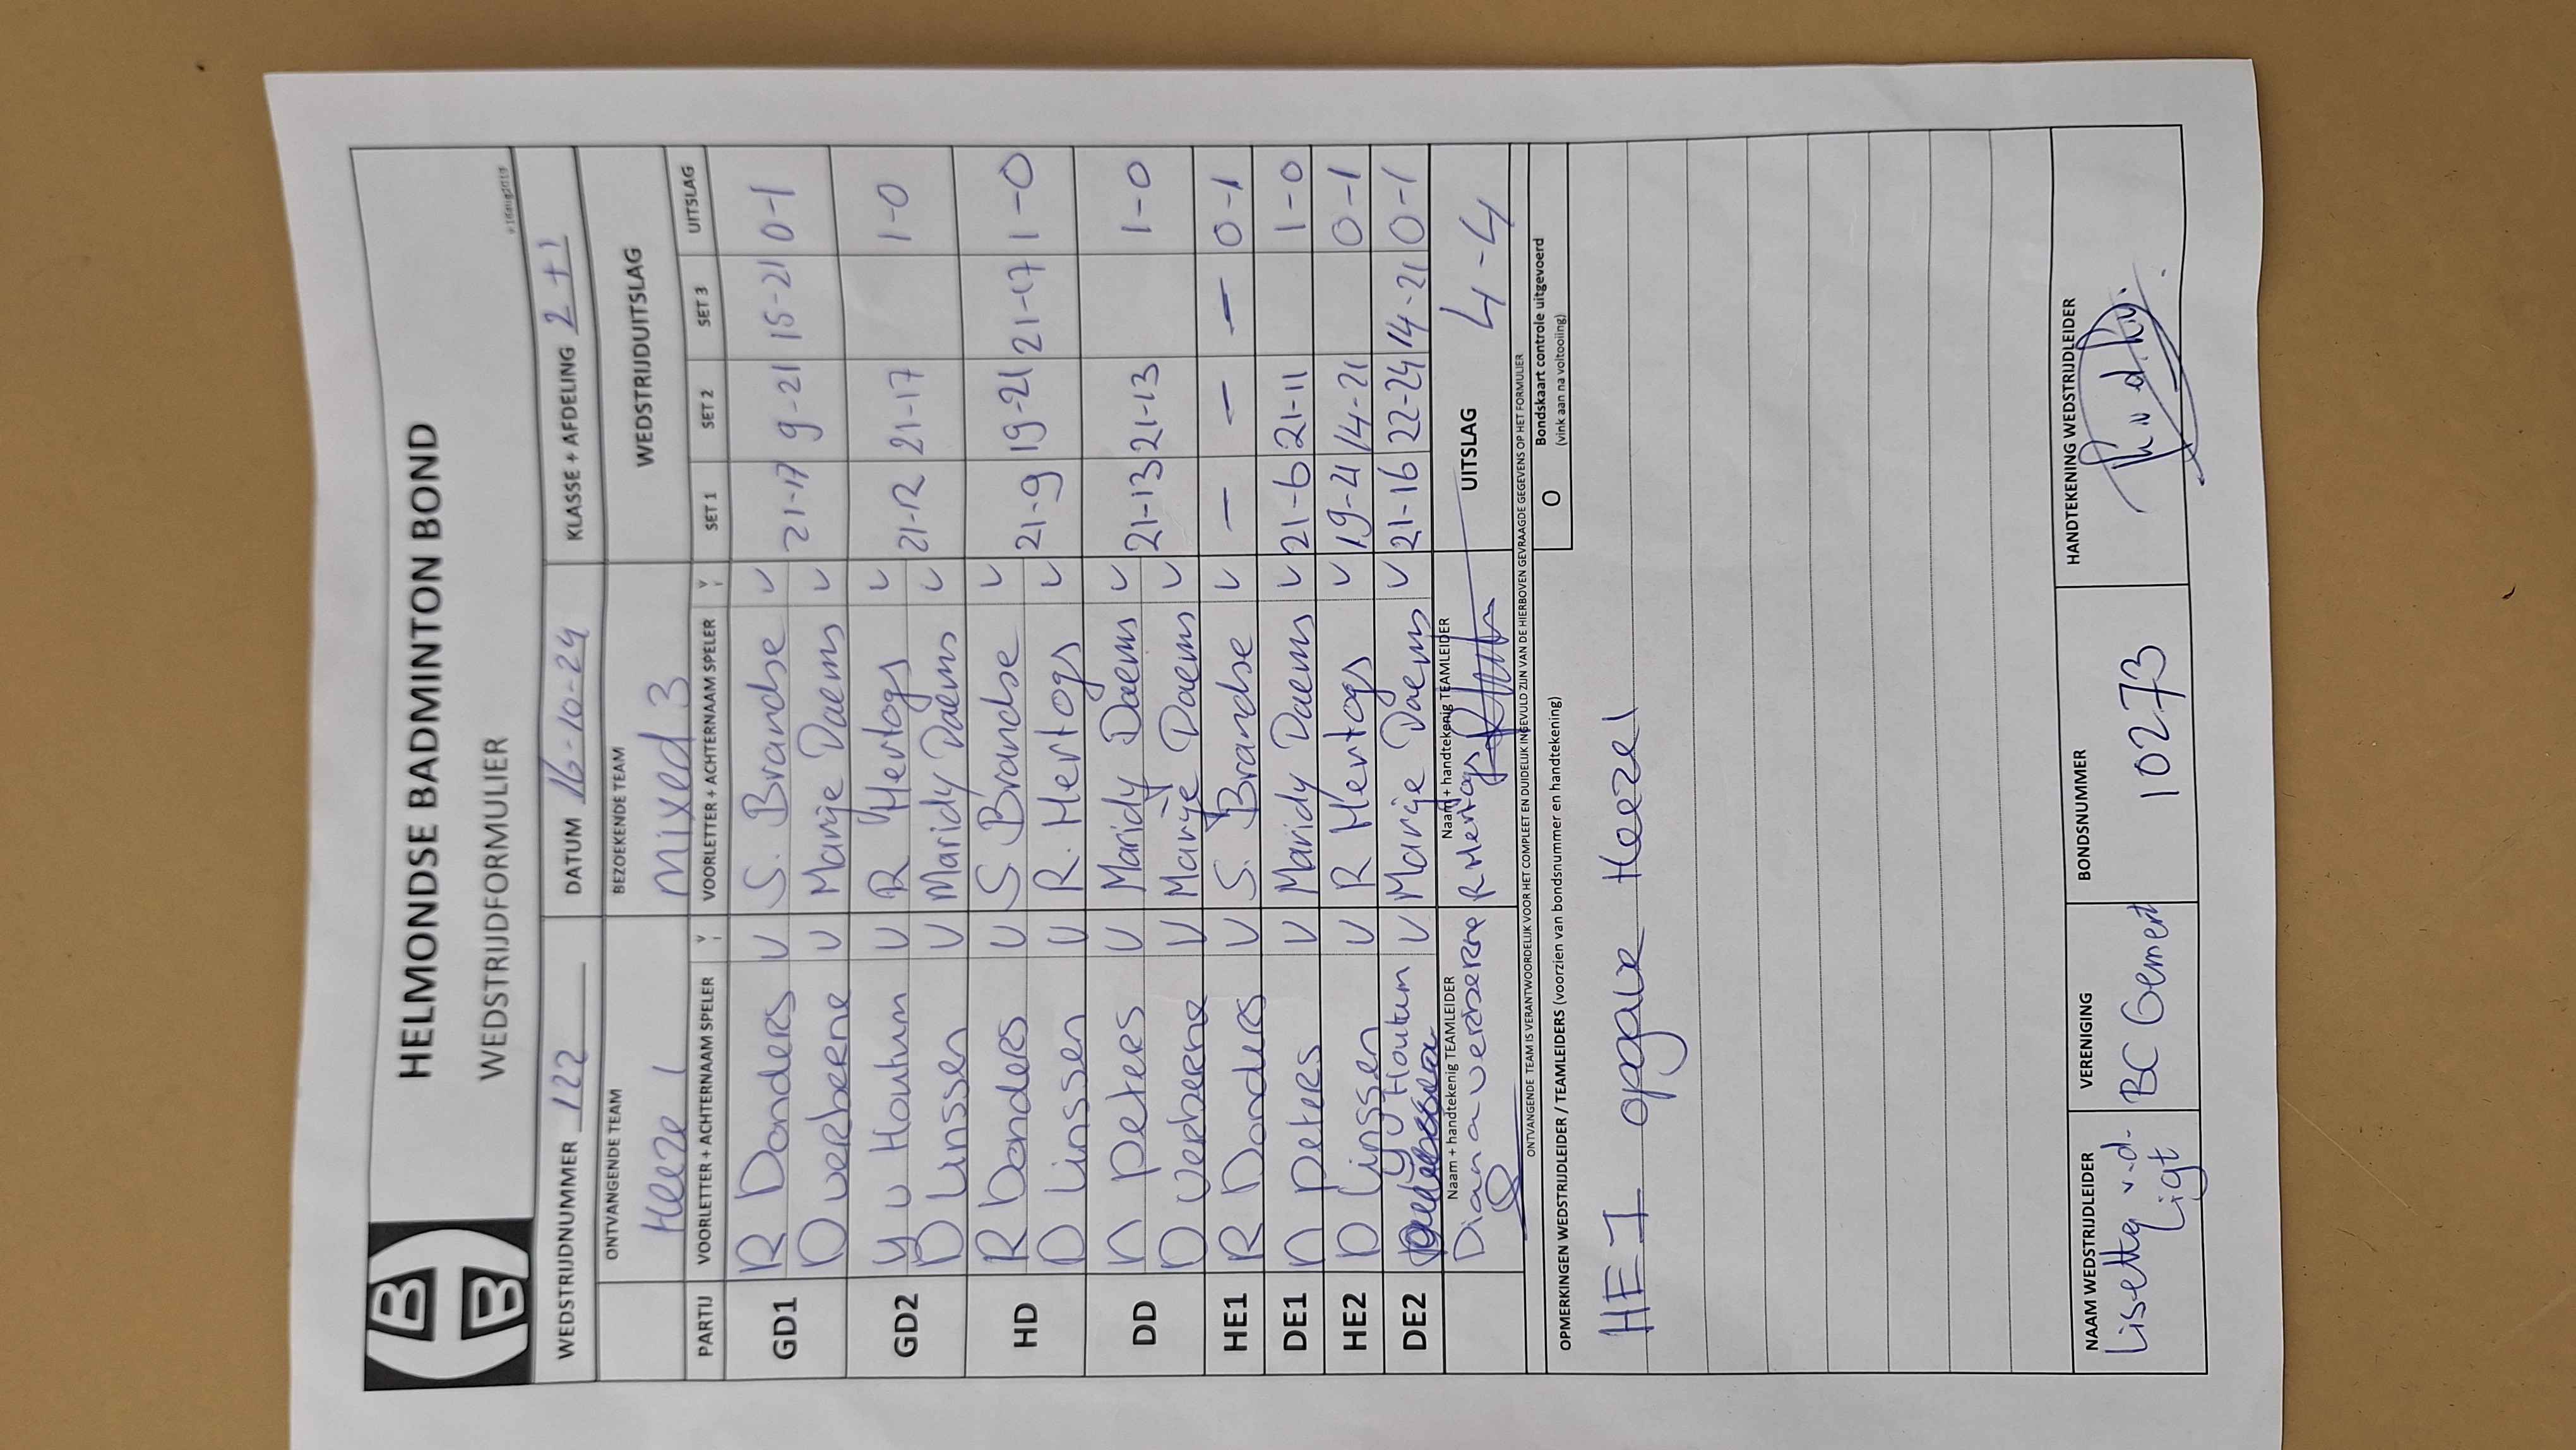 HELMONDSE BADMINTON BOND
WEDSTRIJDFORMULIER
WEDSTRIJDNUMMER 122 DATUM 16-10-24 KLASSE + AFDELING 2 + 1
ONTVANGENDE TEAM BEZOEKENDE TEAM WEDSTRIJDUITSLAG
Heeze 1 Mixed 3
PARTIJ VOORLETTER + ACHTERNAAM SPELER V VOORLETTER + ACHTERNAAM SPELER V SET 1 SET 2 SET 3 UITSLAG
GD1 R Donders V S. Brandse V 21-17 9-21 15-21 0-1
D verberne V Marije Daems V
GD2 y v Houtum V R Hertogs V 21-12 21-17 1-0
D Linssen V Maridy Daems V
HD R Donders V S Brandse V 21-9 19-21 21-17 1-0
D Linssen V R. Hertogs V
DD n peters V Maridy Daems V 21-13 21-13 1-0
D verberne V Marije Daems V
HE1 R Donders V S. Brandse V - - - 0-1
DE1 n peters V Maridy Daems V 21-6 21-11 1-0
HE2 D Linssen V R Hertogs V 19-21 14-21 0-1
DE2 y v Houtum V Marije Daems V 21-16 22-24 14-21 0-1
Naam + handtekenig TEAMLEIDER Naam + handtekenig TEAMLEIDER UITSLAG 4-4
Diana verberne R Hertogs
ONTVANGENDE TEAM IS VERANTWOORDELIJK VOOR HET COMPLEET EN DUIDELIJK INGEVULD ZIJN VAN DE HIERBOVEN GEVRAAGDE GEGEVENS OP HET FORMULIER
OPMERKINGEN WEDSTRIJDLEIDER / TEAMLEIDERS (voorzien van bondsnummer en handtekening) O Bondskaart controle uitgevoerd
(vink aan na voltooiing)
HE1 opgave Heeze 1
NAAM WEDSTRIJDLEIDER VERENIGING BONDSNUMMER HANDTEKENING WEDSTRIJDLEIDER
Lisette v.d. BC Gemert 10273
Ligt